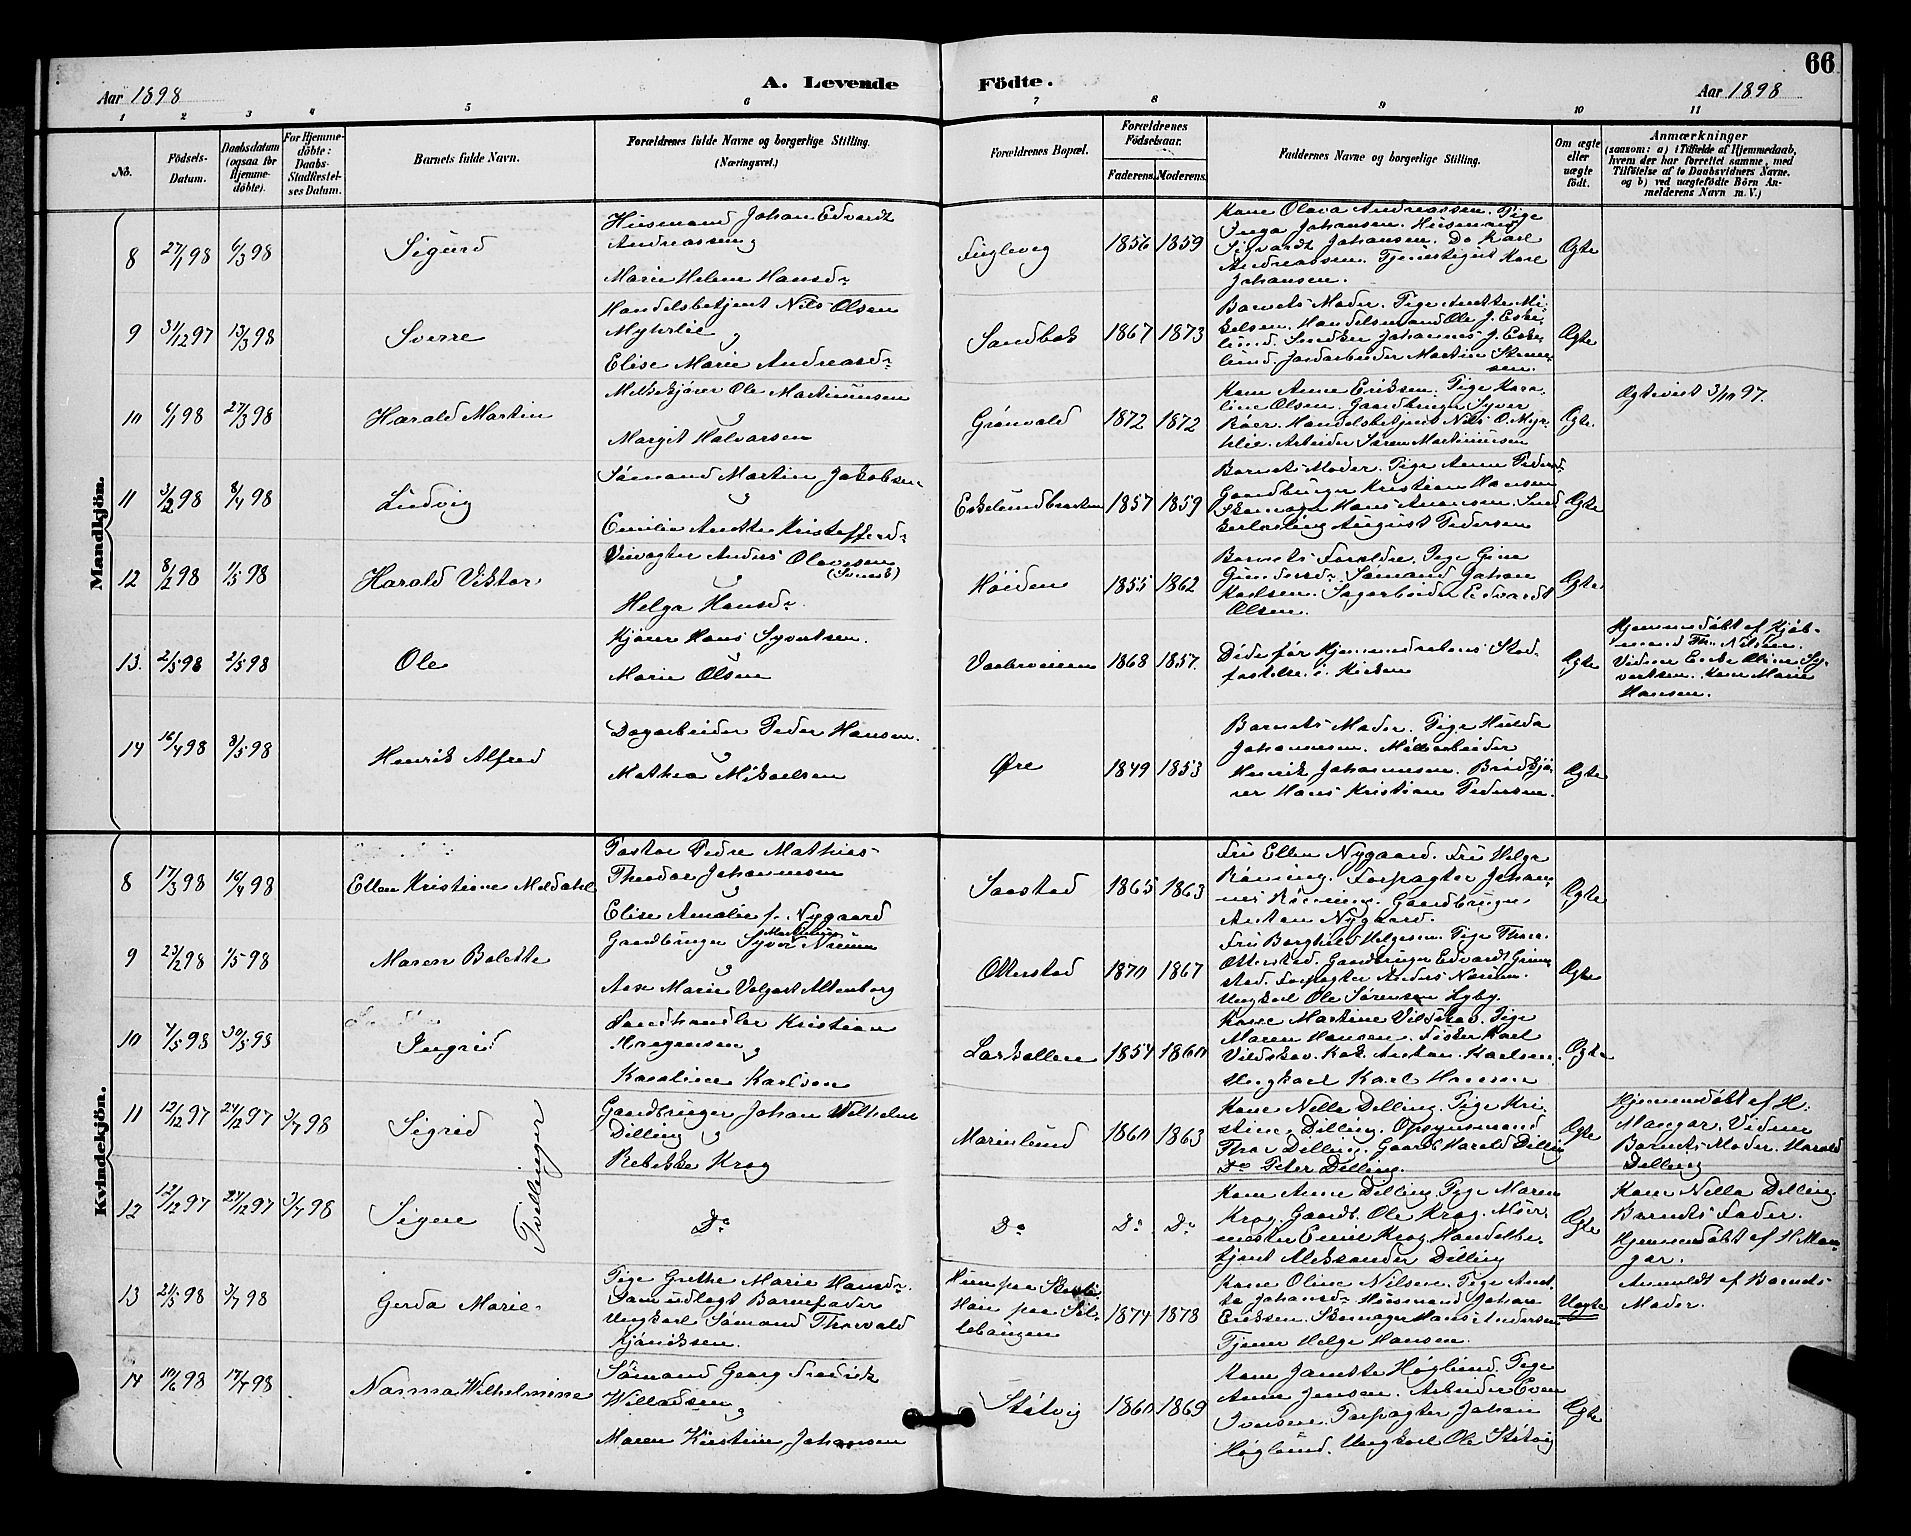 66
Aar 1898
A. Levende
Födte.
Aar 1898
1 2 3 4 5 6 7 8 9 10 11
No.
Födsels-Datum.
Daabsdatum (ogsaa for Hjemmedöbte).
For Hjemmedöbte: Daabs-Stadfestelses Datum.
Barnets fulde Navn.
Forældrenes fulde Navne og borgerlige Stilling.
(Næringsvei.)
Forældrenes Bopæl.
Forældrenes Födselsaar.
Faderens. Moderens.
Faddernes Navne og borgerlige Stilling.
Om ægte eller uægte födt.
Anmærkninger
(saasom: a) i Tilfælde af Hjemmedaab,
hvem der har forrettet samme, med
Tilföielse af to Daabsvidners Navne,
og b) ved uægtefödte Börn An-
melderens Navn m. V.)
Mandkjön.
8 27/1 98 6/3 98 Sigurd
Husmand Johan Edvardt
Andreassen
og
Marie Helene Hansdr
Fuglevig 1856 1859
Kone Olava Andreassen. Pige
Inga Johansen. Husmand
Sigvardt Johansen. Do Karl
Andreassen. Tjenestegut Karl
Johansen.
Ægte
9 31/12 97 13/3 98 Sverre
Handelsbetjent Nils Olsen
Myhrlie
og
Elise Marie Andreasdr
Sandbak 1867 1873
Barnets Moder. Pige Anette Mi-
kelsen. Handelsmand Ole J. Eske-
lund. Snedker Johannes J. Eske-
lund. Jordarbeider Martin
Ægte
10 6/1 98 27/3 98 Harald Martin
Melkekjører Ole Martinussen
og
Margit Halvorsen
Grønvold 1872 1872
Kone Anne Eriksen. Pige Karo-
line Olsen. Gaardbruger Syver
Røer. Handelsbetjent Nils O. Myr-
hlie. Arbeider Søren Martinusen
Ægte.
Ægteviet 3/10 97.
11 3/2 98 8/4 98 Ludvig
Sømand Martin Jakobsen
og
Emilie Anette Kristoffersdr
Eskelundbraaten 1857 1859
Barnets Moder. Pige Anna Pedersd.
Gaardbruger Kristian Hansen
Skomager Hans Hansen. Sned-
kerlærling August Pedersen
Ægte
12 8/2 98 1/5 98 Harald Viktor
Veivogter Anders Olavesen
(Svensk)
og
Helga Hansdr.
Høiden 1855 1862
Barnets Forældre. Pige Gina
Gundersdr. Sømand Johan
Karlsen. Sagarbeider Edvardt
Olsen.
Ægte
13. 2/5 98 2/5 98 Ole
Kjører Hans Syvertsen.
Marie Olsen
1868 1857.
Døde før Hjemmedaabens Stad-
fæstelse i Kirken
Ægte
Hjemmedøbt af Kjøb-
mand Th. Nilsen.
Vidner Enke Oline Sy-
vertsen. Kone Marie
Hansen.
14 16/4 98 8/5 98 Henrik Alfred
Dagarbeider Peder Hansen.
og
Mathea Mikaelsen
Øre 1849 1853
Barnets Moder. Pige Hulda
Johannesen. Møllearbeider
Henrik Johannesen. Brødkjø-
rer Hans Kristian Pedersen.
Ægte
Kvindekjön.
8 17/3 98 10/4 98 Ellen Kristiane Meldahl
Pastor Pedre Mathias
Theodor Johannesen
og
Elise Amalie f. Nygaard
Saastad 1865 1863
Fru Ellen Nygaard. Fru Helga
Rønning. Forpagter Johan-
nes Rønning. Gaardbruger
Anton Nygaard.
Ægte
9 23/2 98 1/5 98 Maren Bolette
Gaardbruger Syver
og
Aase Marie Volgart Altenborg
Otterstad 1870 1867
Fru Borghild Helgesen. Pige Thora
Otterstad. Gaardbruger Edvardt Grim-
stad. Forpagter Anders Norum.
Ungkarl Ole Sørensen Lyby.
Ægte
10 4/5 98 30/5 98 Ingrid
Landhandler Kristian
Mogensen
og
Karoline Karlsen
Larkollen 1854 1860
Kone Martine Vildskov. Pige
Maren Hansen. Fisker Karl
Vildskov. Kok Anton Karlsen.
Ungkarl Karl Hansen
Ægte
11 12/12 97 24/12 97 3/7 98 Sigrid
Tvillinger
Gaardbruger Johan Wilhelm
Dilling
og
Rebekka Krog
Marielund 1860 1863
Kone Nella Dilling. Pige Kri-
stine Dilling. Opsynsmand
Thor Dilling. Gaardb. Harald Dilling
Do Peter Dilling.
Ægte
Hjemmedøbt af H.
Mangor. Vidner
Barnets Moder. Harald
Dilling
12 12/12 97 24/12 97 3/7 98 Signe
Do
Do
Do Do
Kone Anne Dilling. Pige Maren
Krog. Gaardb. Ole Krog. Møer-
mester Emil Krog. Handelbe-
tjent Aleksander Dilling
Ægte
Kone Nella Dilling
Barnets Fader.
Hjemmedøbt af H. Man-
gor.
13 24/5 98 3/7 98 Gerda Marie
Pige Grethe Marie Hansdr.
Som udlagt Barnefader
Ungkarl Sømand Thorvald
Kjøniksen.
Hun paa
Han paa Sil-
lebaugen
1874 1878
Kone Oline Nilsen. Pige Anet-
te Johansdr. Huusmand Johan
Eriksen. Skomager Hans Andersen
Tjener Helge Hansen.
Uægte
Anmeldt af Barnets
Moder.
14 10/6 98 17/7 98 Norma Wilhelmine
Sømand Georg Fredrik
Willadsen
og
Maren Kirstine Johansen
Støtvig 1860 1869
Kone Janette Høglund. Pige
Anna Jensen. Arbeider Even
Iversen. Forpagter Johan
Høglund. Ungkarl Ole Støtvig
Ægte